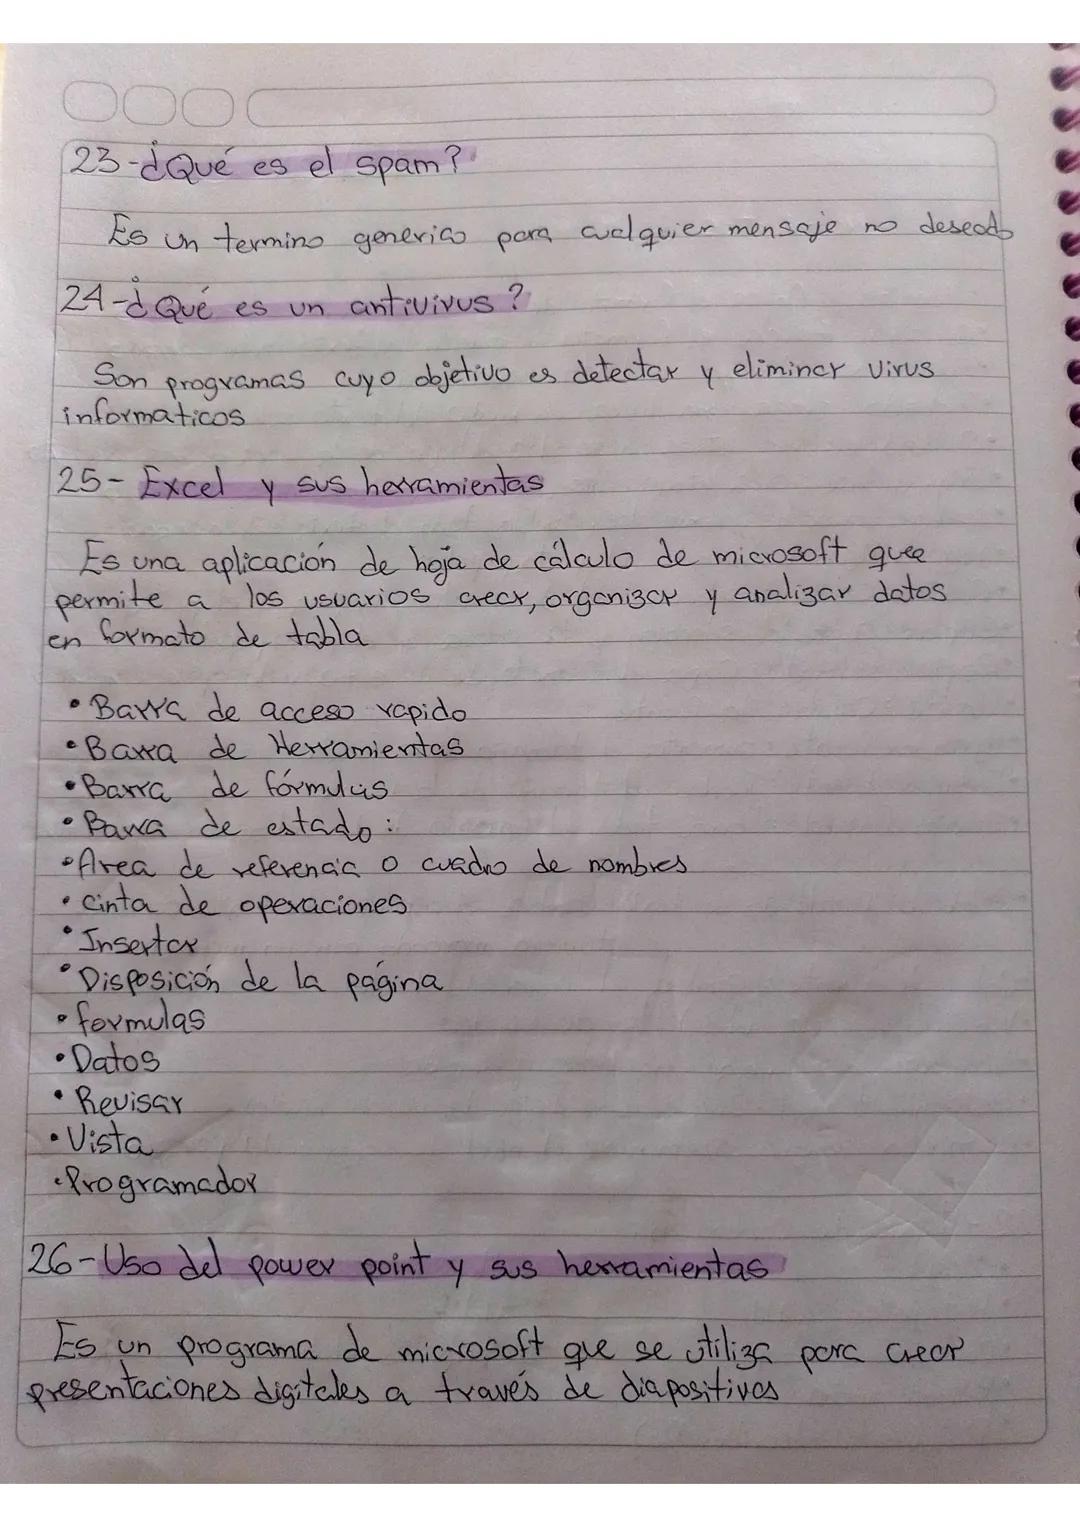 23-¿Qué es el spam?
Es un termino generico para cualquier mensaje no deseado
24-¿Qué es un antivirus?
Son programas cuyo objetivo es detectar y eliminar virus
informaticos
25- Excel y sus herramientas
Es una aplicación de hoja de cálculo de microsoft quee
permite a los usuarios crear, organizar y analizar datos
en formato de tabla
• Barra de acceso rapido
• Barra de Herramientas
• Barra de fórmulas
• Barra de estado:
• Area de referencia o cuadro de nombres
• Cinta de operaciones
• Insertar
• Disposición de la página
• formulas
• Datos
• Revisar
• Vista
• Programador
26-Uso del power point y sus herramientas
Es un programa de microsoft que se utiliza para crear
presentaciones digitales a través de diapositivas